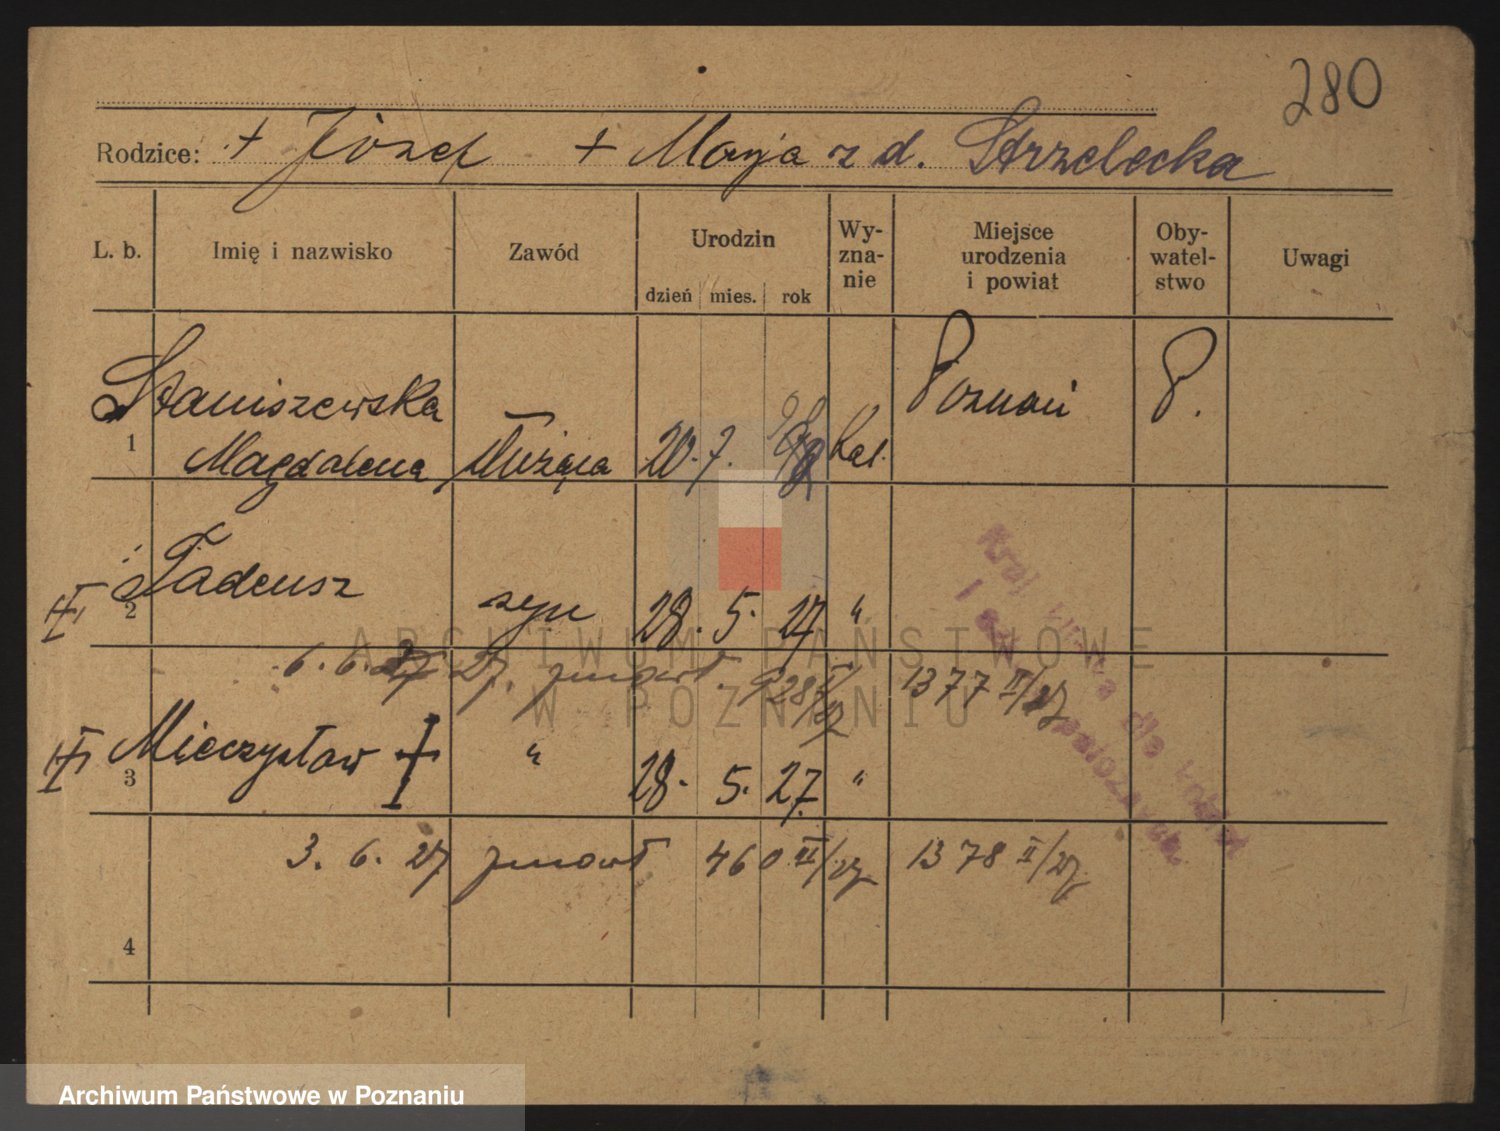 280
Rodzice: + Józef + Marja z d. Strzelecka
L. b. Imię i nazwisko Zawód Urodzin dzień mies. rok Wy-zna-nie Miejsce urodzenia i powiat Oby-watel-stwo Uwagi
Staniszewska Poznań P.
1 Magdalena służąca 20. 7. Kat.
Tadeusz
2 syn 28. 5. 27 "
6. 6. 27. zmarł 1377 II/27
Mieczysław + "
3 28. 5. 27. "
3. 6. 27 zmarł 460 II/27 1378 II/27
4
ARCHIWUM PAŃSTWOWE
W POZNANIU
Archiwum Państwowe w Poznaniu